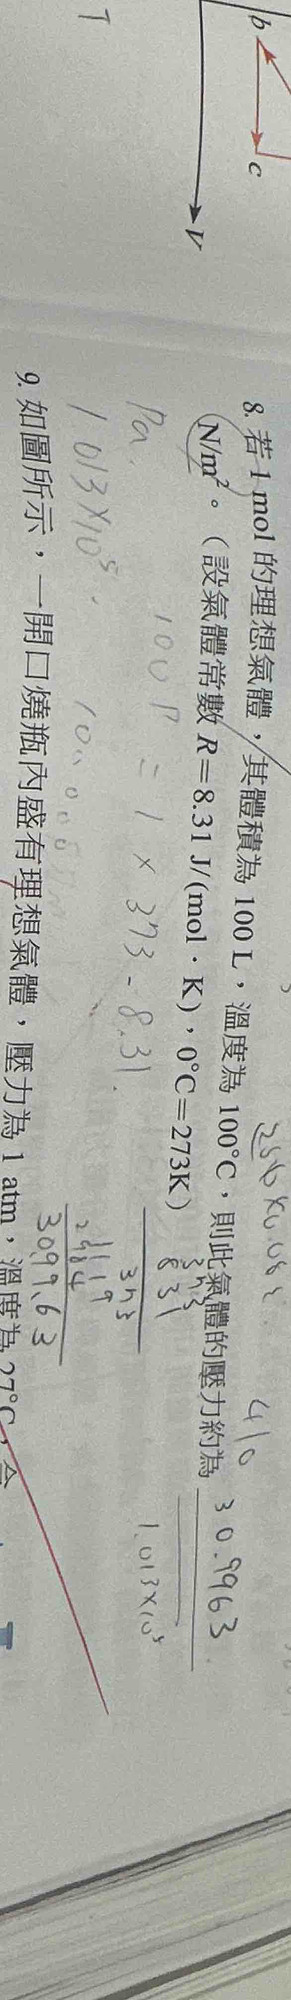 b
c
V
T
8. 若 1 mol 的理想氣體，其體積為 100 L，溫度為 100℃，則此氣體的壓力約為 30.9963
N/m²。（設氣體常數 R＝8.31 J/(mol · K)，0℃＝273K）
Pa.
100 P = 1 × 373 - 8.31.
1.013×10⁵.
410
373
831
373
1119
2984
3099.63
1.013×10⁵
9. 如圖所示，一開口燒瓶內盛有理想氣體，壓力為 1 atm，溫度為 27℃，今